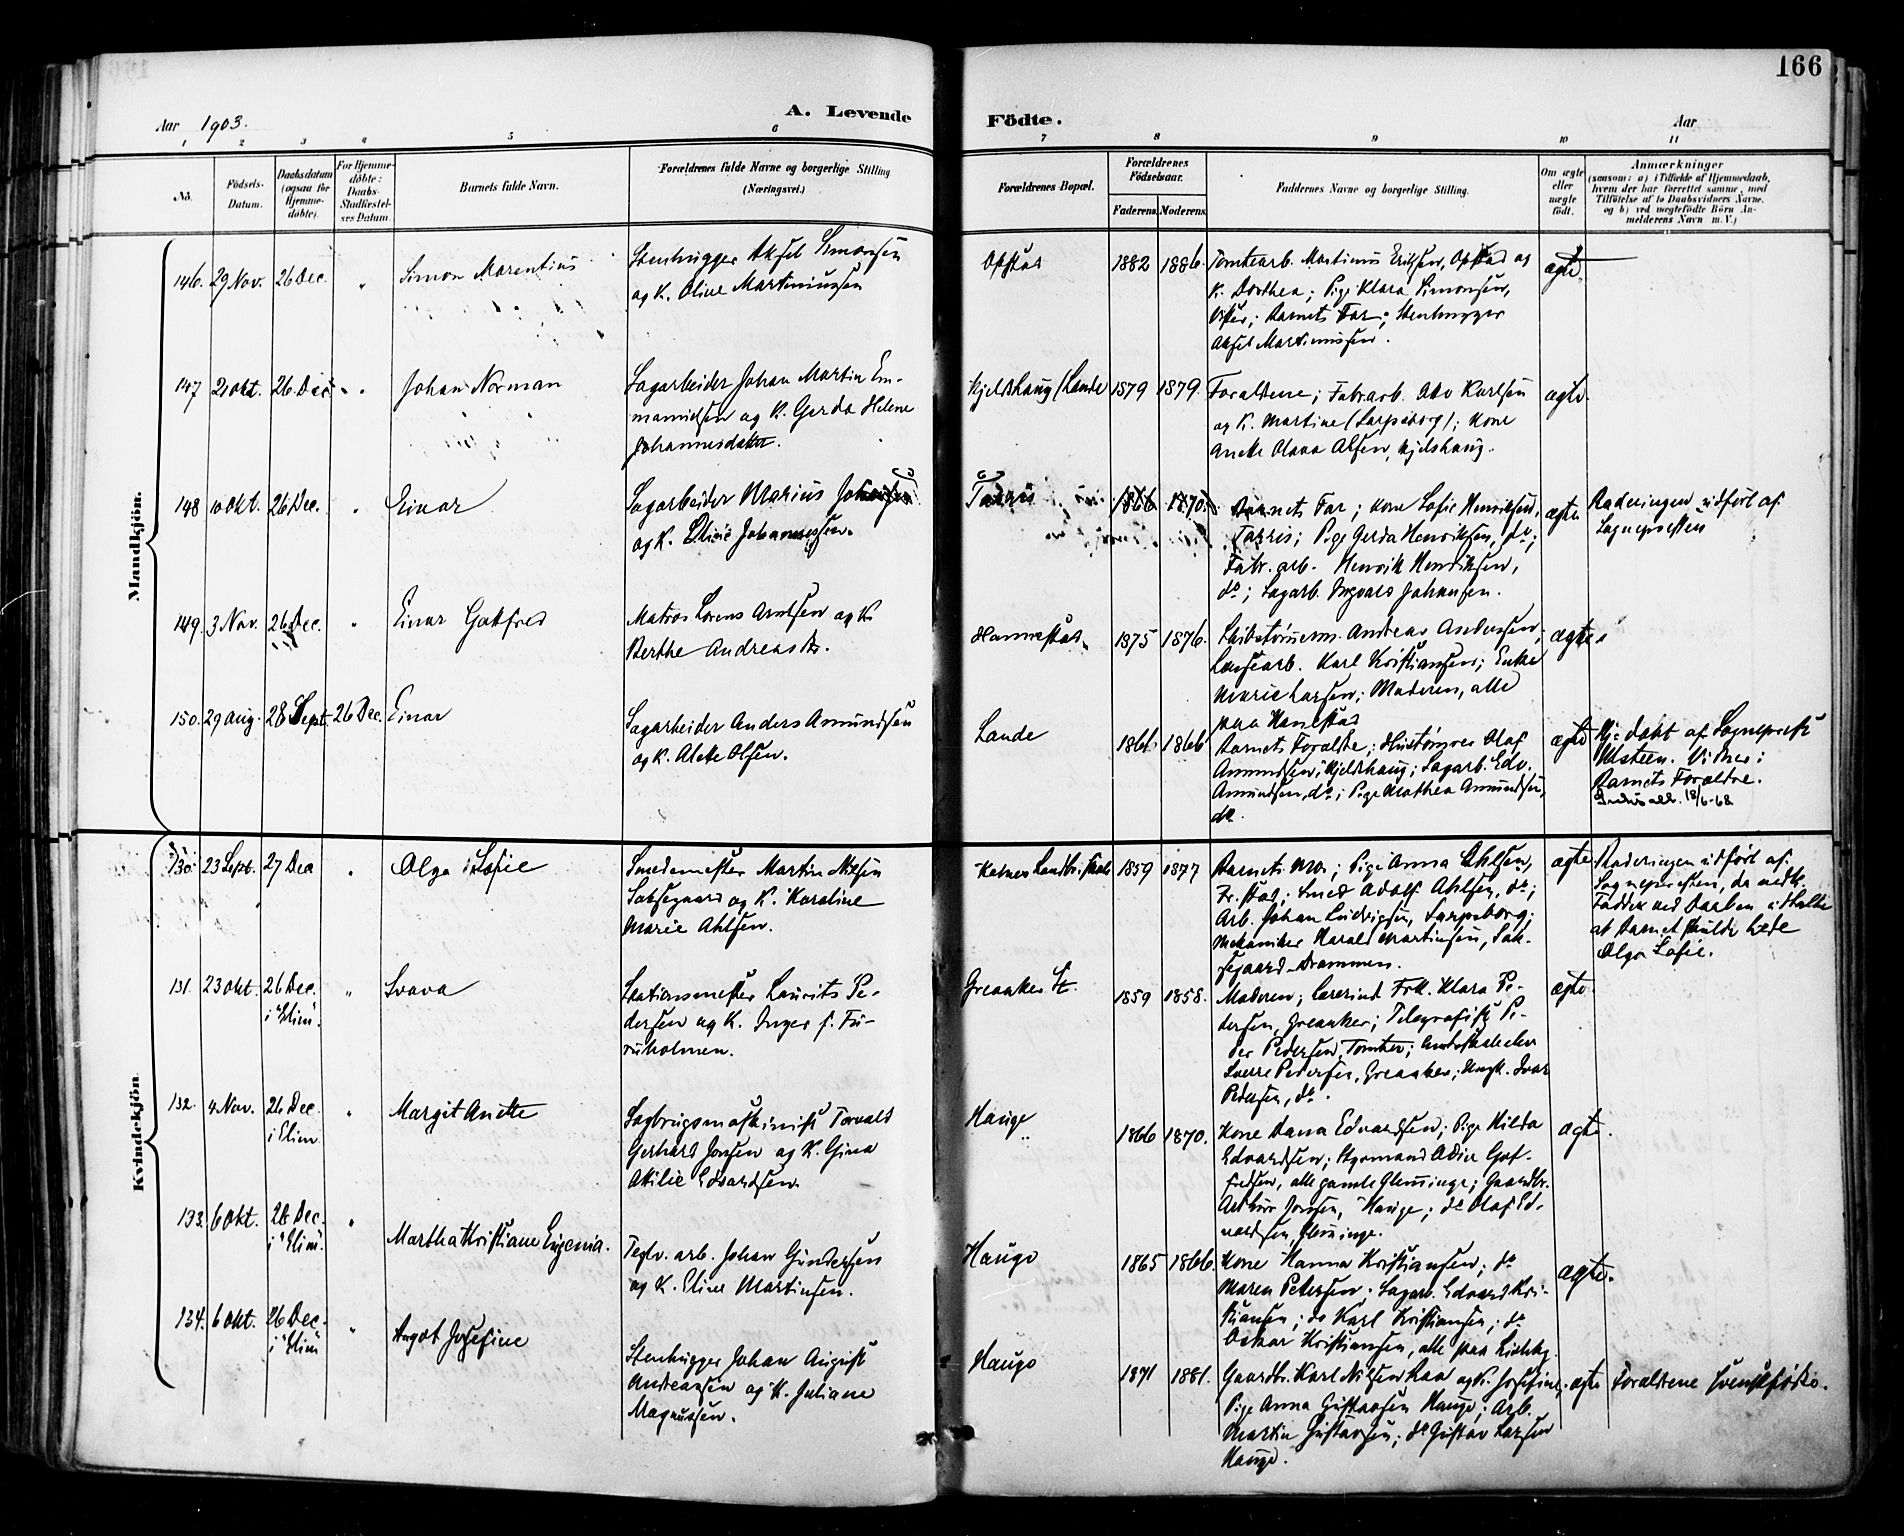 166
Aar 1903.
A. Levende
Födte.
Aar
1 2 3 4 5 6 7 8 9 10 11
No.
Födsels-Datum.
Daabsdatum (ogsaa for Hjemme-døbte).
For Hjemme-døbte: Daabs-Stadfæstel-ses Datum.
Barnets fulde Navn.
Forældrenes fulde Navne og borgerlige Stilling (Næringsvei.)
Forældrenes Bopæl.
Forældrenes Födselsaar.
Faderens. Moderens.
Faddernes Navne og borgerlige Stilling.
Om ægte eller uægte født.
Anmærkninger
(saasom: a) i Tilfælde af Hjemmedaab,
hvem der har forrettet samme, med
Tilføielse af to Daabsvidners Navne.
og b) ved uægtefödte Börn An-
melderens Navn m. V.)
Mandkjön.
146. 29 Nov. 26 Dec. " Simon Marentius
Stenhugger Aksel Simonsen
og K. Oline Martiniussen
Opstad 1882 1886.
Tomtearb. Martinius Eriksen, Opstad og
K. Dorthea; Pige Klara Simonsen,
Barnets Far; Stenhugger
Aksel Martiniussen.
ægte.
147 21 Okt. 26 Dec " Johan Norman
Sagarbeider Johan Martin Em-
manuelsen og K. Gerda Helene
Johannesdatter.
Kjeldshaug/Lande 1879 1879.
Forældrene; Fabr.arb. Otto Karlsen
og K. Martine (Sarpsborg); Kone
Anette Olava Olsen, Kjelshaug.
ægte.
148 10 Okt. 26 Dec. " Einar
Sagarbeider Marius Johansen
og K. Eline Johannessen.
1866 1870.
Barnets Far; Kone Sofie Henriksen,
Torris; Pige Gerda Henriksen, do;
Fabr. arb. Henrik Henriksen,
do; Sagarb. Ingvald Johansen.
ægte
Raderingen udført af
Sognepresten
149. 3 Nov. 26 Dec. " Einar Gotfred
Matros Lorens Arntsen og K.
Berthe Andreasdr.
Hannestad. 1875 1876.
Skibstømm. Andreas Andersen,
Lensearb. Karl Kristiansen; Enke
Marie Larsen; Moderen, alle
paa Hanestad
ægte
150. 29 Aug. 28 Sept. 26 Dec. Einar
Sagarbeider Anders Amundsen
og K. Alete Olsen.
Lande 1861 1866
Barnets Forældre; Hustømrer Olaf
Amundsen, Kjeldshaug; Sagarb. Edv.
Amundsen, do; Pige Mathea Amundsen,
do.
ægte
Hj: døbt af Sogneprest
Ulsteen. Vidner:
Barnets Forældre.
18/6-68
Kvindekjön.
130. 23 Sept. 27 Dec " Olga Sofie
Smedemester Martin Nilsen
Saksegaard og K. Karoline
Marie Ahlsen.
Kalnes Landbr. skole 1859 1877
Barnets Mo.; Pige Anna Ahlsen,
Fr.stad; Smed Adolf Ahlsen, do;
Arb. Johan Ludvigsen, Sarpsborg;
Mekaniker Harald Martinsen, Sak-
segaard - Drammen.
ægte
Raderingen udført af
Sognepresten, da
Fadder ved Daaben
at Barnet skulde hede
Olga Sofie.
131. 23 Okt. 26 Dec. i Elim. " Svava
Stationsmester Laurits Pe-
dersen og K. Inger f. Fu-
ruholmen.
Greaaker St. 1859 1858.
Moderen; Lærerind Frk. Klara Pe-
dersen, Greaaker; Telegrafist Pe-
der Pedersen, Tomter;
Sverre Pedersen, Greaaker; Ungk. Ivar
Pedersen, do.
ægte.
132. 4 Nov. 26 Dec. i Elim " Margit Anette
Sagbrugsmaskinist Torvald
Gerhard Jonsen og K. Gina
Otilie Edvardsen.
Hauge 1866 1870.
Kone Dana Edvardsen; Pige Hilda
Edvardsen; Styrmand Odin Got-
fredsen, alle gamle Glemminge; Gaardbr.
Arthur Jonsen, Hauge; do Olaf Ed-
vardsen, Glemminge.
ægte.
133. 6 Okt. 26 Dec. i Elim. " Martha Kristiane Eugenia.
Teglv. arb. Johan Gundersen
og K. Eline Martinsen.
Hauge 1865 1866.
Kone Hanna Kristiansen; do
Maren Petersen; Sagarb. Edvard Kri-
stiansen; do Karl Kristiansen; do
Oskar Kristiansen, alle paa
ægte.
134. 6 Okt. 26 Dec. i Elim " Angot Josefine
Stenhugger Johan August
Andreassen og K. Juliane
Magnussen.
Hauge 1871 1881.
Gaardbr. Karl Nilsen Raa og K. Josefine;
Pige Anna Gustavsen Hauge; Arb.
Martin Gustavsen; do Gustav Larsen
Hauge.
ægte
Forældrene svenskfødte.